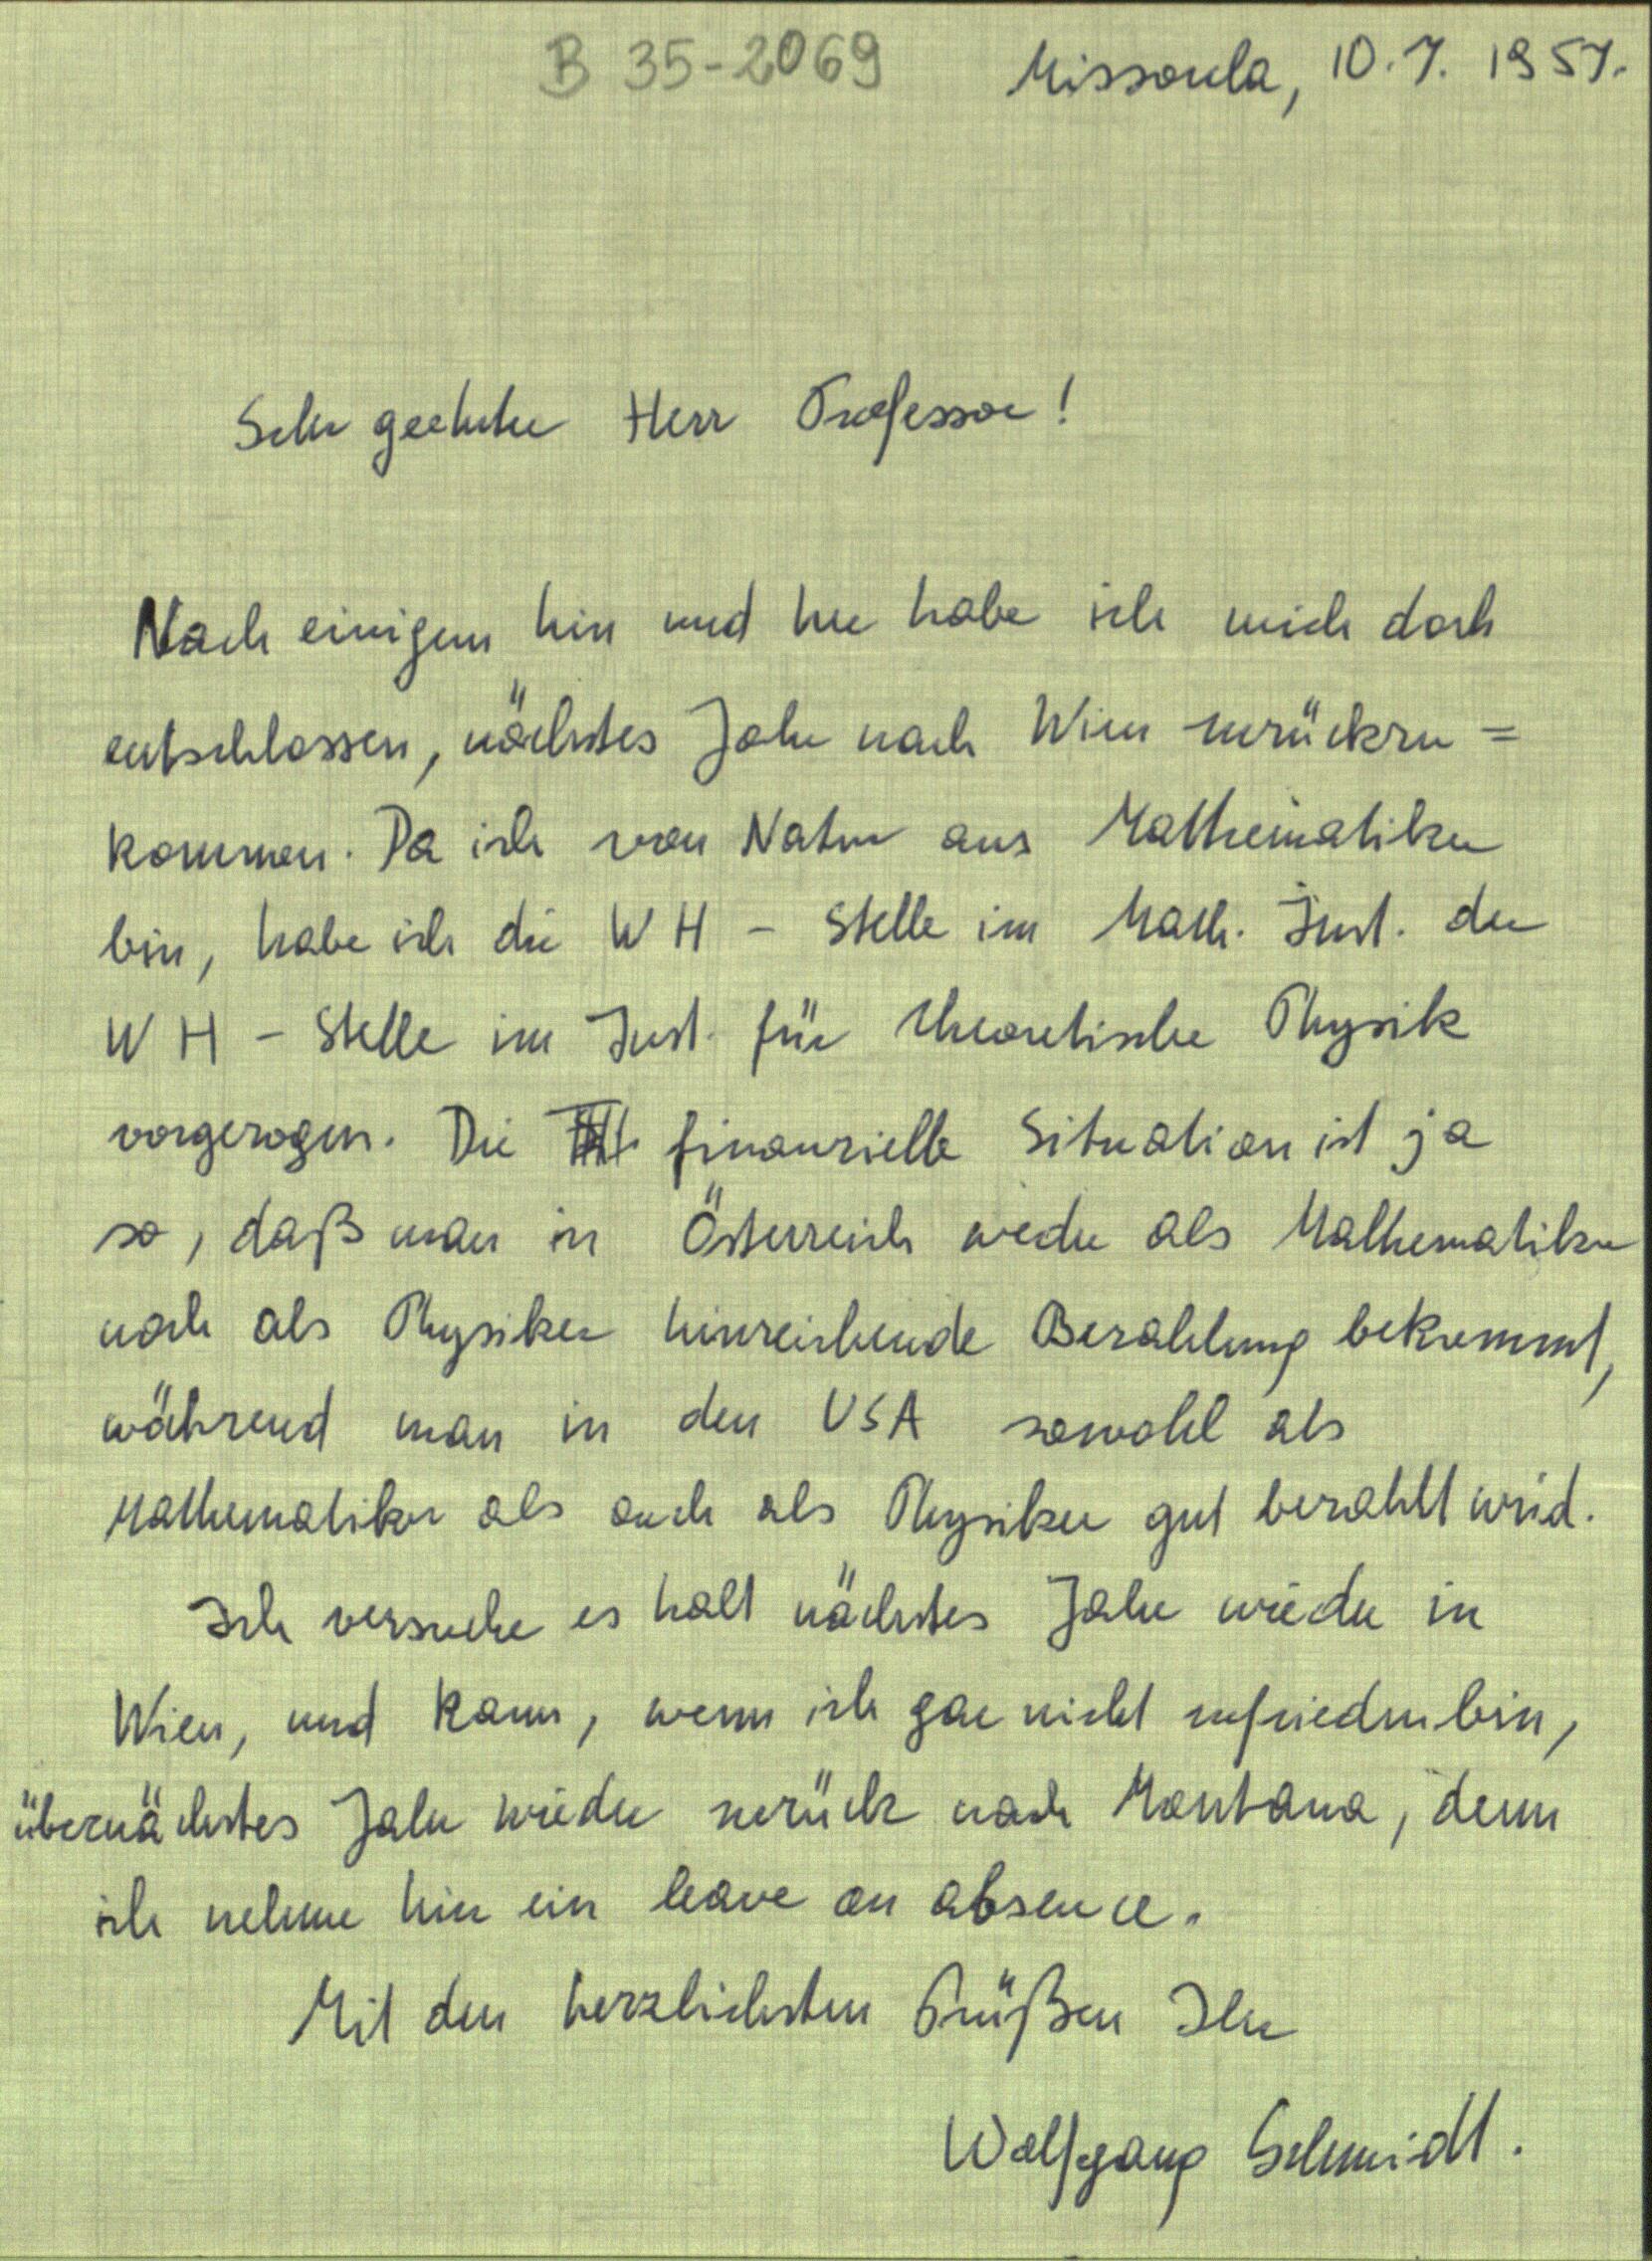 B 35-2069
Missoula, 10. 7. 1957.
Sehr geehrter Herr Professor!
Nach einigem hin und her habe ich mich doch
entschlossen, nächstes Jahr nach Wien zurückzu=
kommen. Da ich von Natur aus Mathematiker
bin, habe ich die WH - Stelle im Math. Inst. der
WH - Stelle im Inst. für theoretische Physik
vorgezogen. Die finanzielle Situation ist ja
so, daß man in Österreich weder als Mathematiker
noch als Physiker hinreichende Bezahlung bekommt,
während man in den USA sowohl als
Mathematiker als auch als Physiker gut bezahlt wird.
Ich versuche es halt nächstes Jahr wieder in
Wien, und kann, wenn ich gar nicht zufrieden bin,
übernächstes Jahr wieder zurück nach Montana, denn
ich nehme hier ein leave on absence.
Mit den herzlichsten Grüßen Ihr
Wolfgang Schmidt.